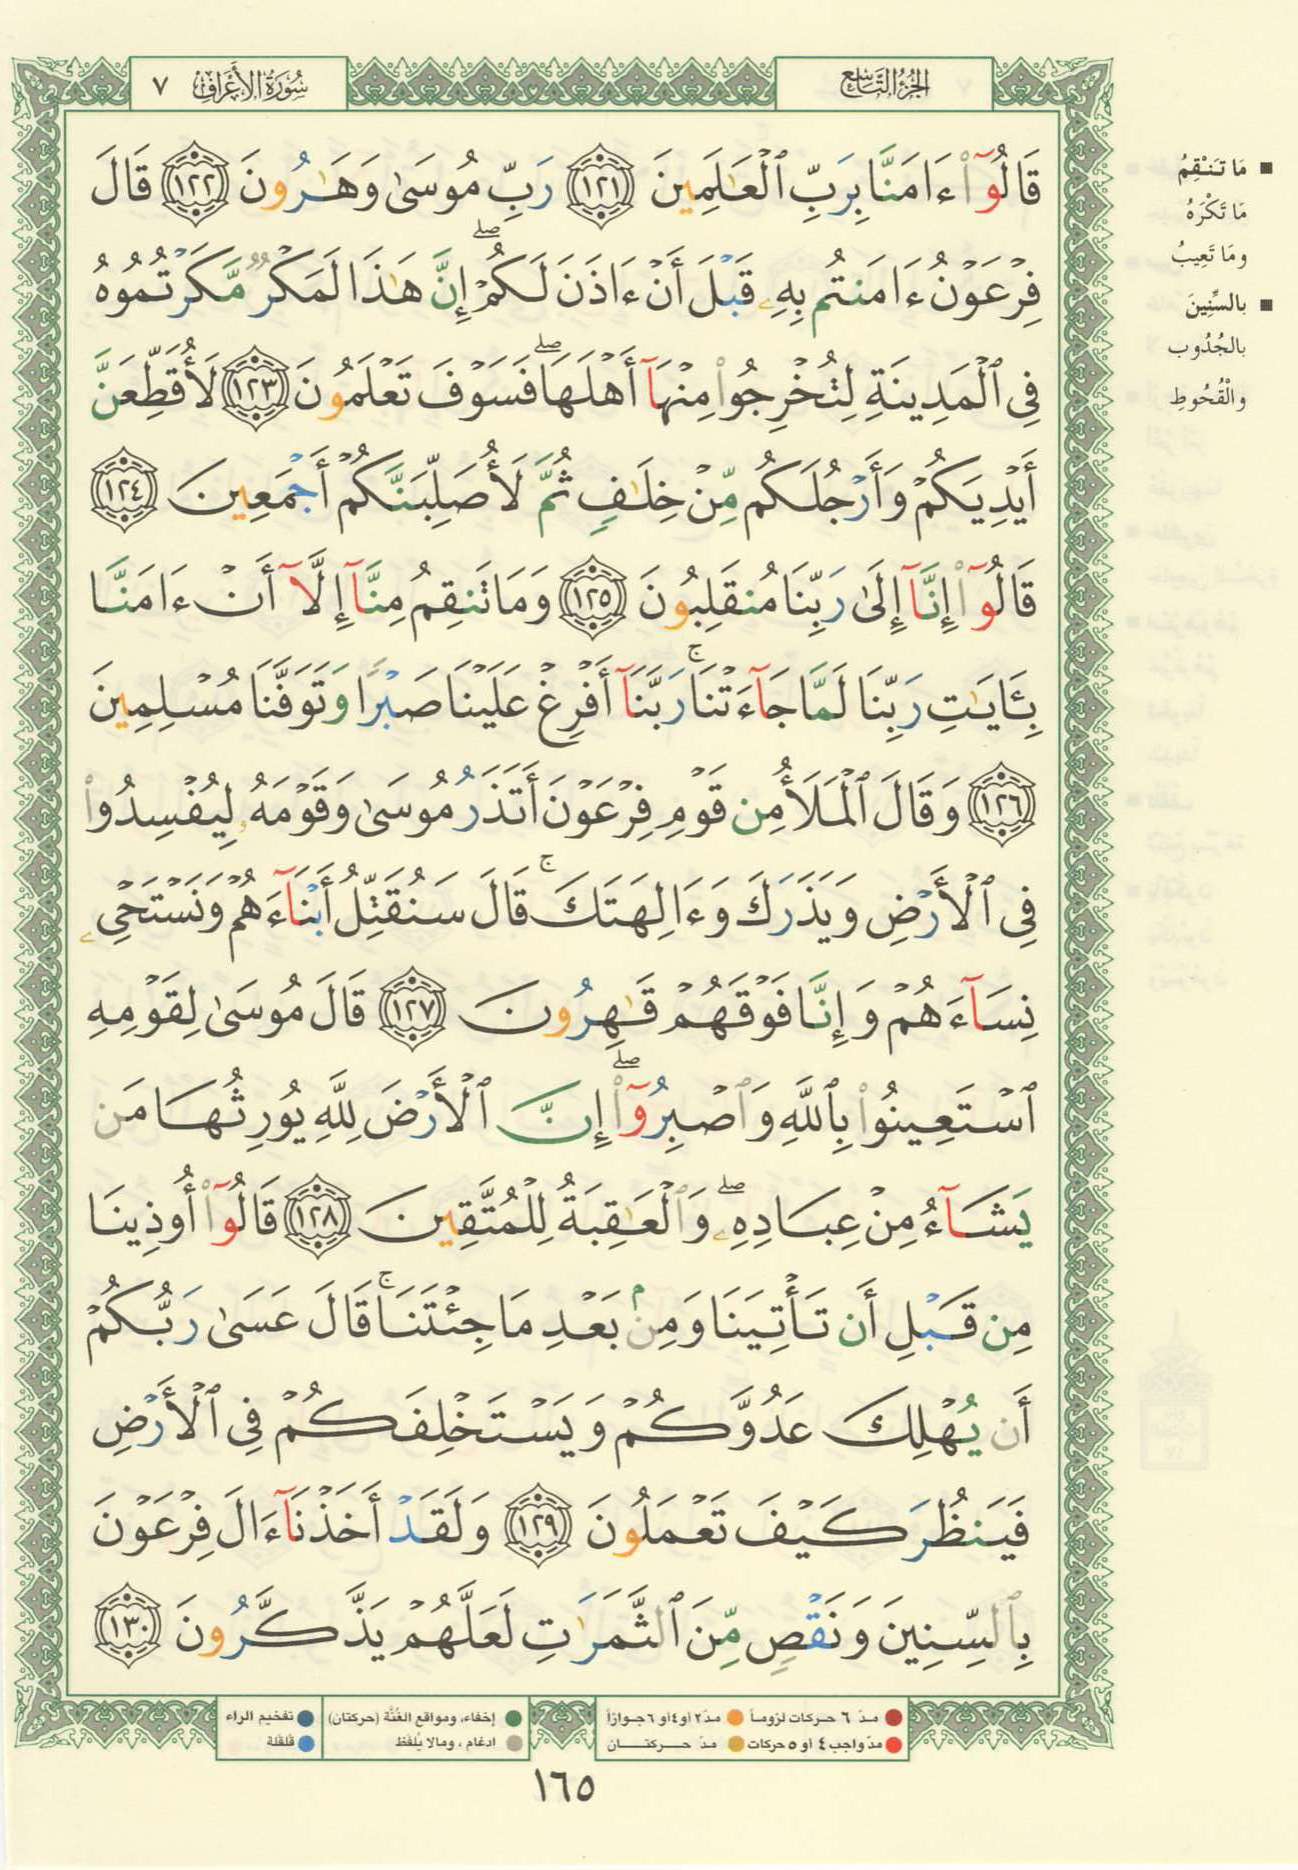 سُورَةُ الأَعْرَاف ٧
الجُزْءُ التَّاسِع
قَالُوٓا۟ ءَامَنَّا بِرَبِّ ٱلْعَـٰلَمِينَ ١٢١ رَبِّ مُوسَىٰ وَهَـٰرُونَ ١٢٢ قَالَ
فِرْعَوْنُ ءَامَنتُم بِهِۦ قَبْلَ أَنْ ءَاذَنَ لَكُمْ ۖ إِنَّ هَـٰذَا لَمَكْرٌ مَّكَرْتُمُوهُ
فِى ٱلْمَدِينَةِ لِتُخْرِجُوا۟ مِنْهَآ أَهْلَهَا ۖ فَسَوْفَ تَعْلَمُونَ ١٢٣ لَأُقَطِّعَنَّ
أَيْدِيَكُمْ وَأَرْجُلَكُم مِّنْ خِلَـٰفٍ ثُمَّ لَأُصَلِّبَنَّكُمْ أَجْمَعِينَ ١٢٤
قَالُوٓا۟ إِنَّآ إِلَىٰ رَبِّنَا مُنقَلِبُونَ ١٢٥ وَمَا تَنقِمُ مِنَّآ إِلَّآ أَنْ ءَامَنَّا
بِـَٔايَـٰتِ رَبِّنَا لَمَّا جَآءَتْنَا ۚ رَبَّنَآ أَفْرِغْ عَلَيْنَا صَبْرًا وَتَوَفَّنَا مُسْلِمِينَ
١٢٦ وَقَالَ ٱلْمَلَأُ مِن قَوْمِ فِرْعَوْنَ أَتَذَرُ مُوسَىٰ وَقَوْمَهُۥ لِيُفْسِدُوا۟
فِى ٱلْأَرْضِ وَيَذَرَكَ وَءَالِهَتَكَ ۚ قَالَ سَنُقَتِّلُ أَبْنَآءَهُمْ وَنَسْتَحْىِۦ
نِسَآءَهُمْ وَإِنَّا فَوْقَهُمْ قَـٰهِرُونَ ١٢٧ قَالَ مُوسَىٰ لِقَوْمِهِ
ٱسْتَعِينُوا۟ بِٱللَّهِ وَٱصْبِرُوٓا۟ ۖ إِنَّ ٱلْأَرْضَ لِلَّهِ يُورِثُهَا مَن
يَشَآءُ مِنْ عِبَادِهِۦ ۖ وَٱلْعَـٰقِبَةُ لِلْمُتَّقِينَ ١٢٨ قَالُوٓا۟ أُوذِينَا
مِن قَبْلِ أَن تَأْتِيَنَا وَمِنۢ بَعْدِ مَا جِئْتَنَا ۚ قَالَ عَسَىٰ رَبُّكُمْ
أَن يُهْلِكَ عَدُوَّكُمْ وَيَسْتَخْلِفَكُمْ فِى ٱلْأَرْضِ
فَيَنظُرَ كَيْفَ تَعْمَلُونَ ١٢٩ وَلَقَدْ أَخَذْنَآ ءَالَ فِرْعَوْنَ
بِٱلسِّنِينَ وَنَقْصٍ مِّنَ ٱلثَّمَرَٰتِ لَعَلَّهُمْ يَذَّكَّرُونَ ١٣٠
■ مَا تَنْقِمُ
مَا تَكْرَهُ
ومَا تَعِيبُ
■ بالسِّنِينَ
بالجُدُوب
والْقُحُوطِ
مدّ ٦ حركات لزوماً
مدّ ٢ أو ٤ أو ٦ جوازاً
مدّ واجب ٤ أو ٥ حركات
مدّ حركتان
إخفاء، ومواقع الغُنَّة (حركتان)
ادغام، ومالا يُلفظ
تفخيم الراء
قلقلة
١٦٥